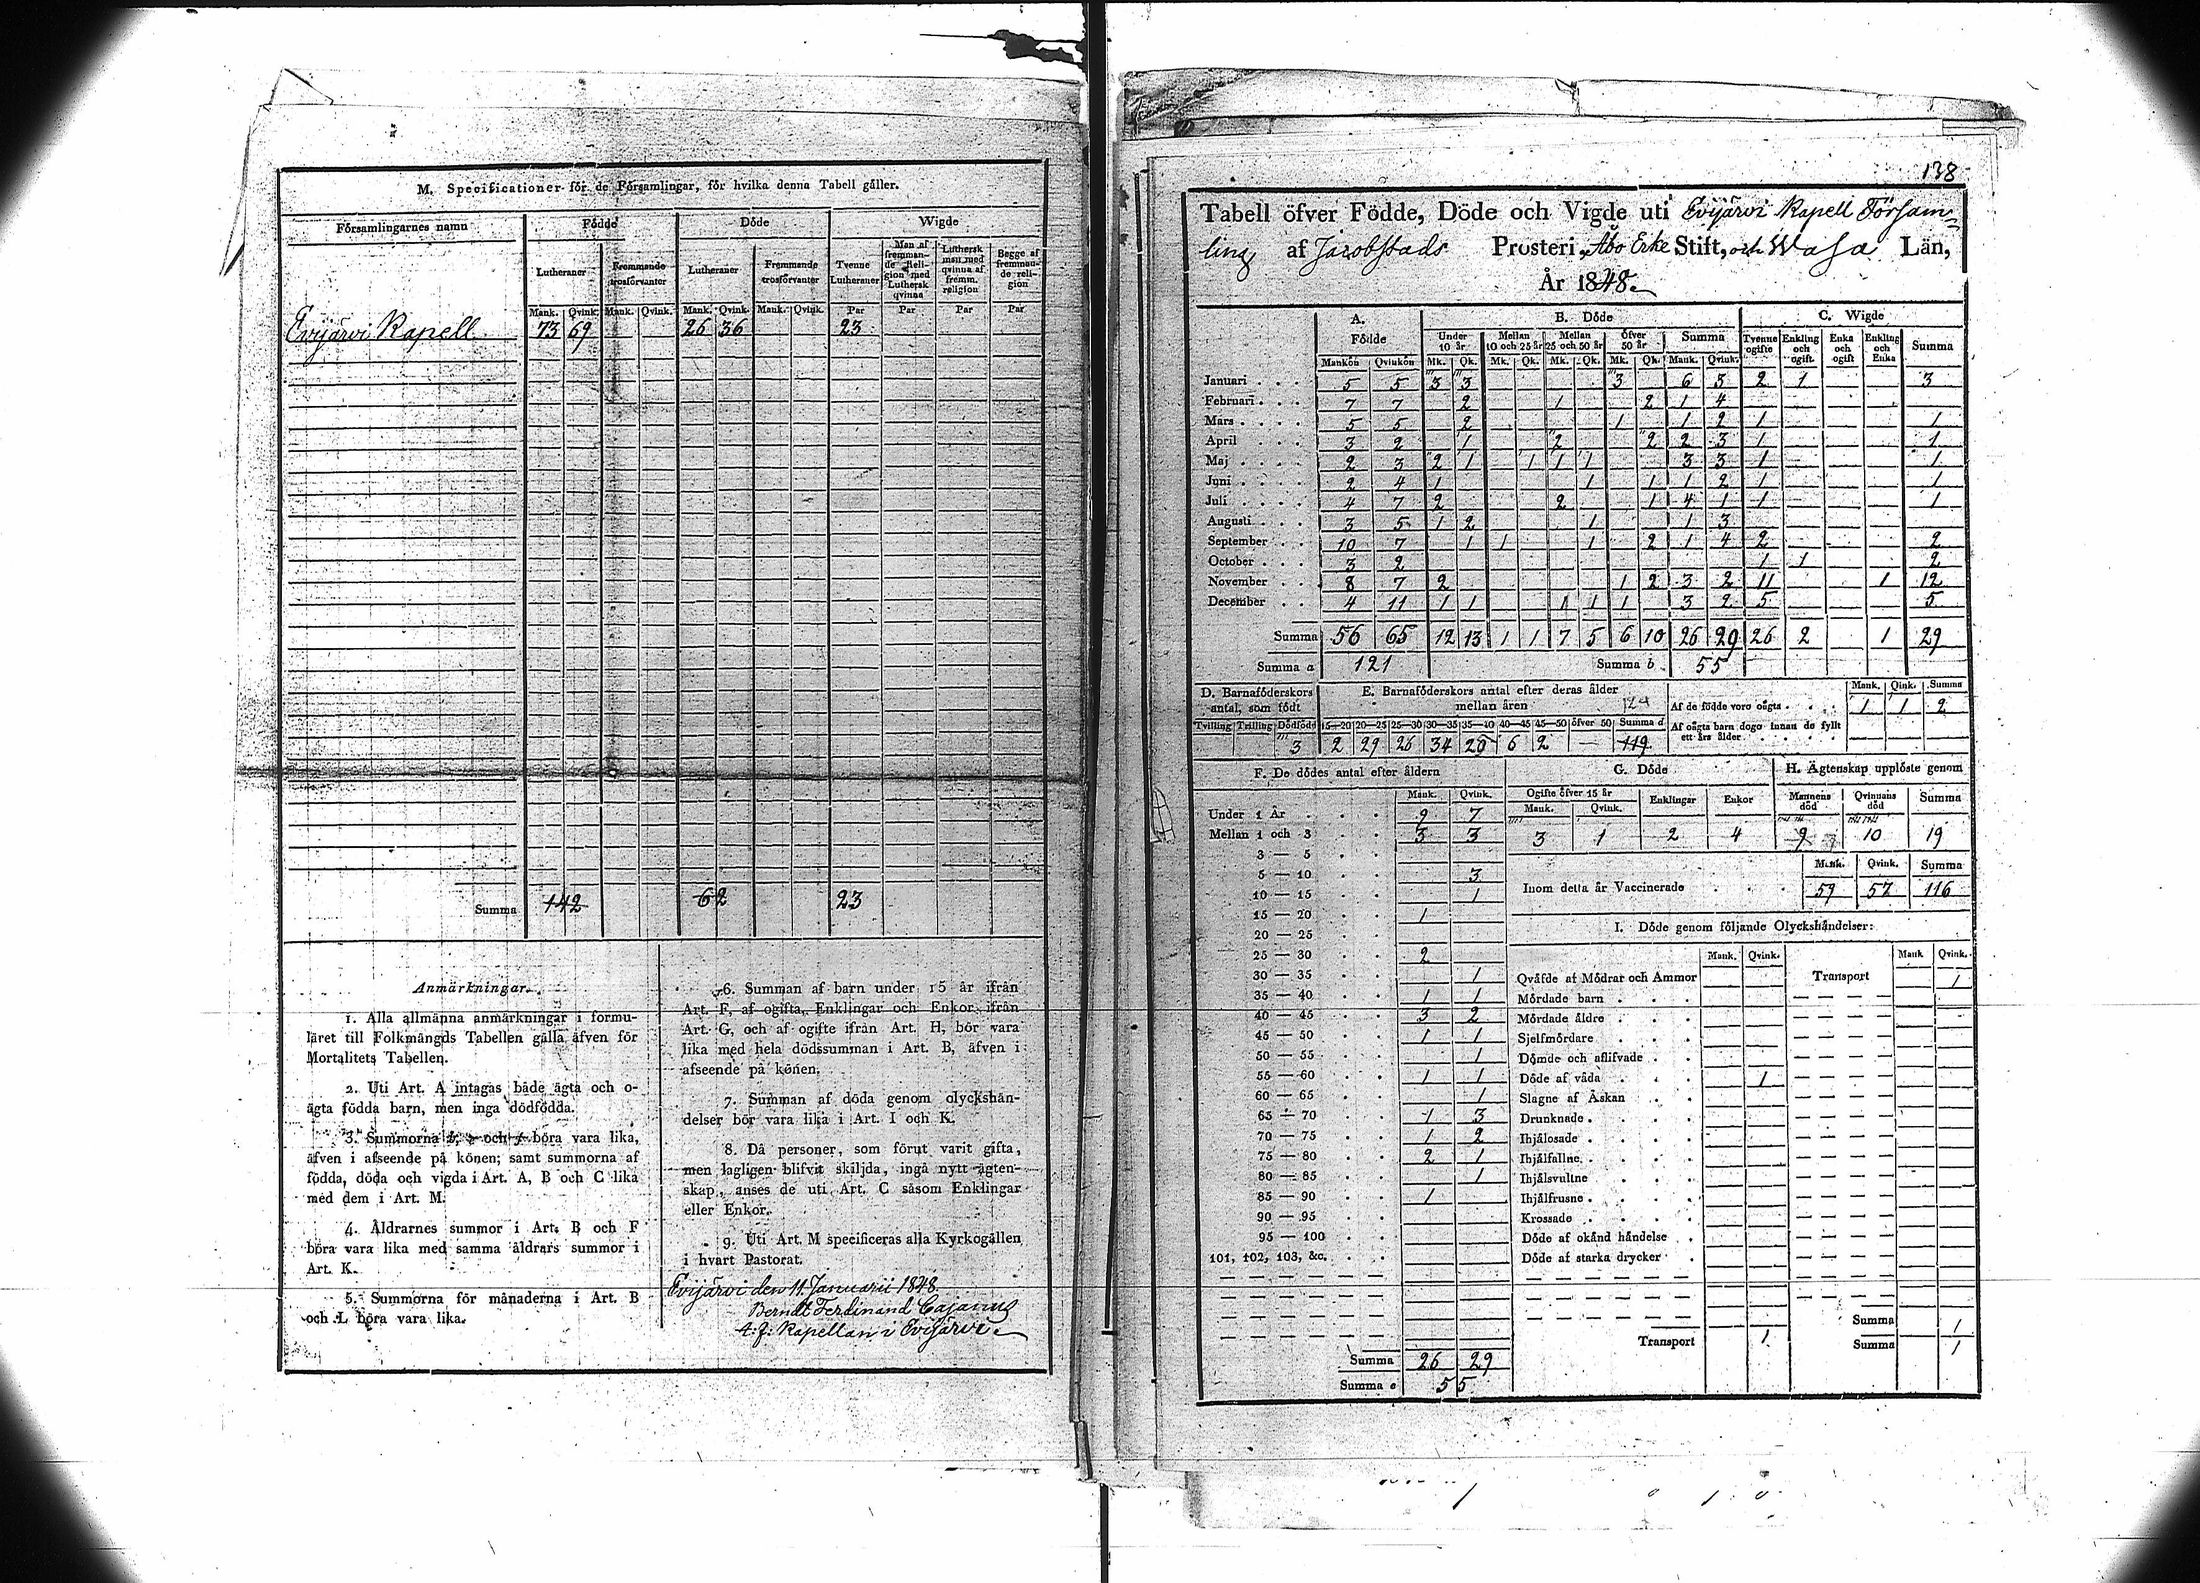 M. Specificationer för de Församlingar, för hvilka denna Tabell gäller.
Församlingarnes namn Födde Döde Wigde
Lutheraner Fremmande trosförvanter Lutheraner Fremmande trosförvanter Tvenne Lutheraner Man af fremmande Religion med Luthersk qvinna Luthersk man med qvinna af fremm. religion Begge af fremmande religion
Mank. Qvink. Mank. Qvink. Mank. Qvink. Mank. Qvink. Par Par Par Par
Evijärvi Kapell 73 69 26 36 23
Summa 142 62 23
Anmärkningar.
1. Alla allmänna anmärkningar i formu-
läret till Folkmängds Tabellen gälla äfven för
Mortalitets Tabellen.
2. Uti Art. A intagas både ägta och o-
ägta födda barn, men inga dödfödda.
3. Summorna b, e och f böra vara lika,
äfven i afseende på könen; samt summorna af
födda, döda och vigda i Art. A, B och C lika
med dem i Art. M.
4. Åldrarnes summor i Art. B och F
böra vara lika med samma åldrars summor i
Art. K.
5. Summorna för månaderna i Art. B
och L böra vara lika.
6. Summan af barn under 15 år ifrån
Art. F, af ogifta, Enklingar och Enkor ifrån
Art. G, och af ogifte ifrån Art. H, bör vara
lika med hela dödssumman i Art. B, äfven i
afseende på könen.
7. Summan af döda genom olyckshän-
delser bör vara lika i Art. I och K.
8. Då personer, som förut varit gifta,
men lagligen blifvit skiljda, ingå nytt ägten-
skap, anses de uti Art. C såsom Enklingar
eller Enkor.
9. Uti Art. M specificeras alla Kyrkogällen
i hvart Pastorat.
Evijärvi den 11 Januarii 1848.
Berndt Ferdinand Cajanus
t: f: Kapellan i Evijärvi.
138
Tabell öfver Födde, Döde och Vigde uti Evijärvi Kapell Församling
af Jacobstads Prosteri, Åbo Erke Stift, och Wasa Län,
År 1848.
A. Födde B. Döde C. Wigde
Under 10 år Mellan 10 och 25 år Mellan 25 och 50 år Öfver 50 år Summa Tvenne ogifte Enkling och ogift Enka och ogift Enkling och Enka Summa
Mankön Qvinkön Mk. Qk. Mk. Qk. Mk. Qk. Mk. Qk. Mank. Qvink.
Januari 5 5 3 3 3 6 3 2 1 3
Februari 7 7 2 1 2 1 4
Mars 5 5 2 1 1 2 1 1
April 3 2 1 2 2 2 3 1 1
Maj 2 3 2 1 1 1 1 3 3 1 1
Juni 2 4 1 1 1 1 2 1 1
Juli 4 7 2 2 1 4 1 1 1
Augusti 3 5 1 2 1 1 3
September 10 7 1 1 1 2 1 4 2 2
October 3 2 1 1 2
November 8 7 2 1 2 3 2 11 1 12
December 4 11 1 1 1 1 1 3 2 5 5
Summa 56 65 12 13 1 1 7 5 6 10 26 29 26 2 1 29
Summa a 121 Summa b 55
D. Barnaföderskors antal, som födt
Tvilling Trilling Dödfödd
3
E. Barnaföderskors antal efter deras ålder mellan åren
124
15—20 20—25 25—30 30—35 35—40 40—45 45—50 öfver 50 Summa d
2 29 26 34 20 6 2 — 119
Mank. Qink. Summa
Af de födde voro oägta 1 1 2
Af oägta barn dogo innan de fyllt ett års ålder
F. De dödes antal efter åldern
Mank. Qvink.
Under 1 År 9 7
Mellan 1 och 3 3 3
3 — 5
5 — 10 3
10 — 15 1
15 — 20 1
20 — 25
25 — 30 2
30 — 35 1
35 — 40 1 1
40 — 45 3 2
45 — 50 1 1
50 — 55 1
55 — 60 1 1
60 — 65 1
65 — 70 1 3
70 — 75 1 2
75 — 80 2 1
80 — 85 1
85 — 90 1
90 — 95
95 — 100
101, 102, 103, &c.
Summa 26 29
Summa e 55
G. Döde
Ogifte öfver 15 år Enklingar Enkor
Mank. Qvink.
3 1 2 4
H. Ägtenskap upplöste genom
Mannens död Qvinnans död Summa
9 10 19
Mank. Qvink. Summa
Inom detta år Vaccinerade 59 57 116
I. Döde genom följande Olyckshändelser:
Mank. Qvink. Mank. Qvink.
Qväfde af Mödrar och Ammor Transport 1
Mördade barn
Mördade äldre
Sjelfmördare
Dömde och aflifvade
Döde af våda 1
Slagne af Åskan
Drunknade
Ihjälosade
Ihjälfallne
Ihjälsvultne
Ihjälfrusne
Krossade
Döde af okänd händelse
Döde af starka drycker
Summa 1
Transport 1 Summa 1